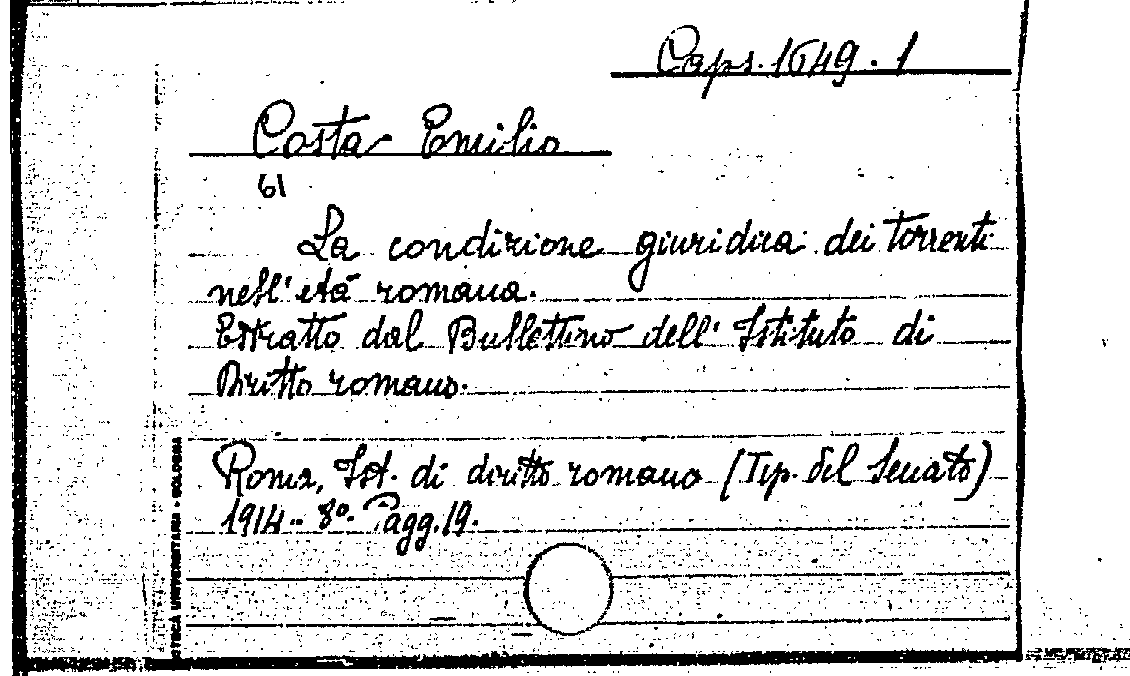 Caps. 1649. 1
Costa Emilio
61
La condizione giuridica dei torrenti
nell'età romana.
Estratto dal Bullettino dell'Istituto di
Diritto romano.
Roma, Ist. di diritto romano (Tip. del Senato)
1914 - 8°. Pagg. 19.
OTECA UNIVERSITARIA - BOLOGNA